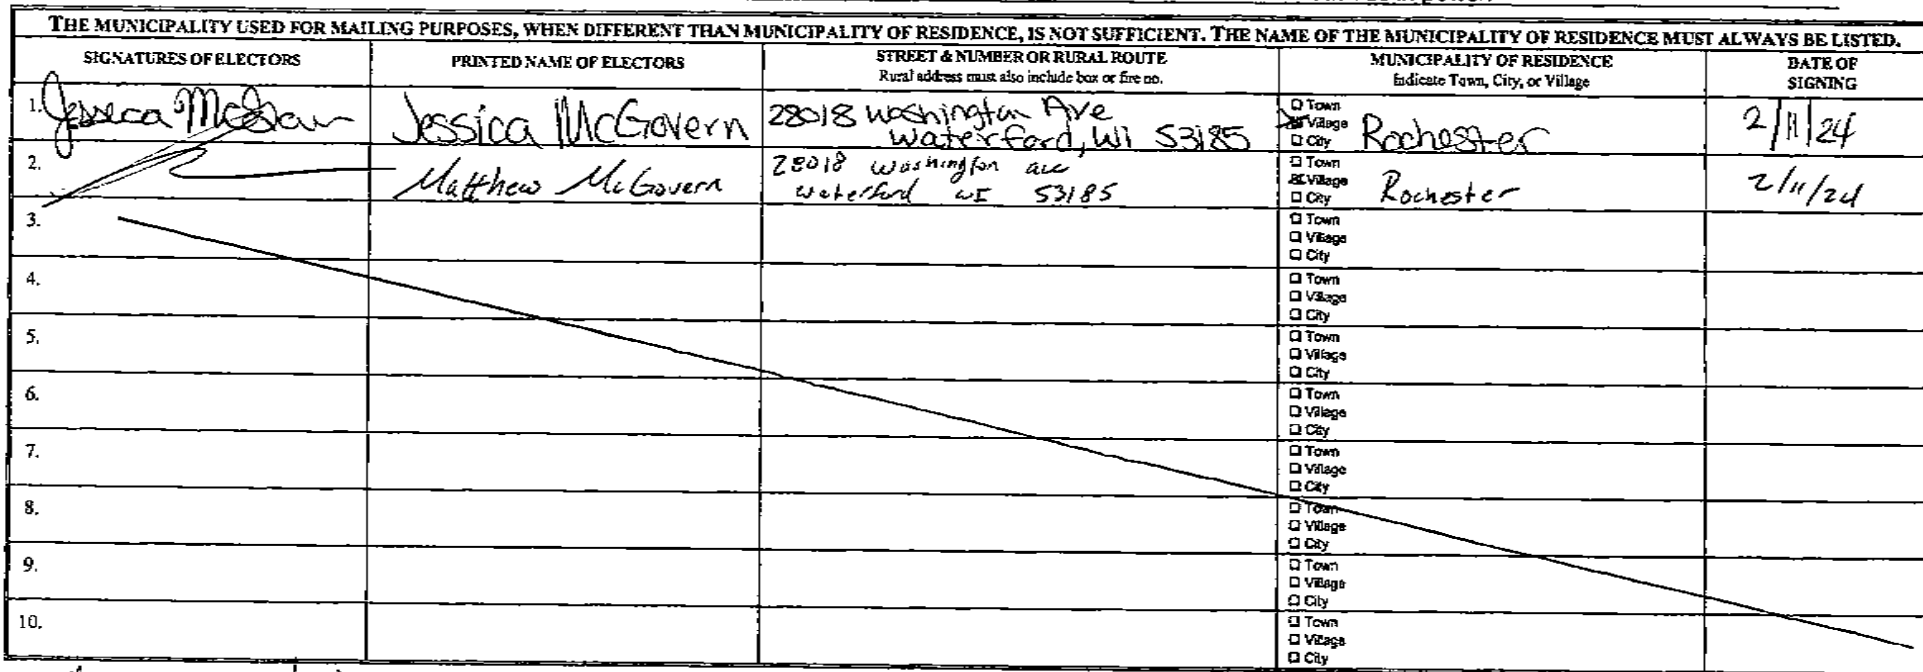 THE MUNICIPALITY USED FOR MAILING PURPOSES, WHEN DIFFERENT THAN MUNICIPALITY OF RESIDENCE, IS NOT SUFFICIENT. THE NAME OF THE MUNICIPALITY OF RESIDENCE MUST ALWAYS BE LISTED.
SIGNATURES OF ELECTORS
PRINTED NAME OF ELECTORS
STREET & NUMBER OR RURAL ROUTE
Rural address must also include box or fire no.
MUNICIPALITY OF RESIDENCE
Indicate Town, City, or Village
DATE OF
SIGNING
1. Jessica
Jessica McGovern
28018 Washington Ave
Waterford, WI 53185
Town
Village
City
Rochester
2/11/24
2.
Matthew McGovern
28018 Washington ave
Waterford WI 53185
Town
Village
City
Rochester
2/11/24
3.
Town
Village
City
4.
Town
Village
City
5.
Town
Village
City
6.
Town
Village
City
7.
Town
Village
City
8.
Town
Village
City
9.
Town
Village
City
10.
Town
Village
City